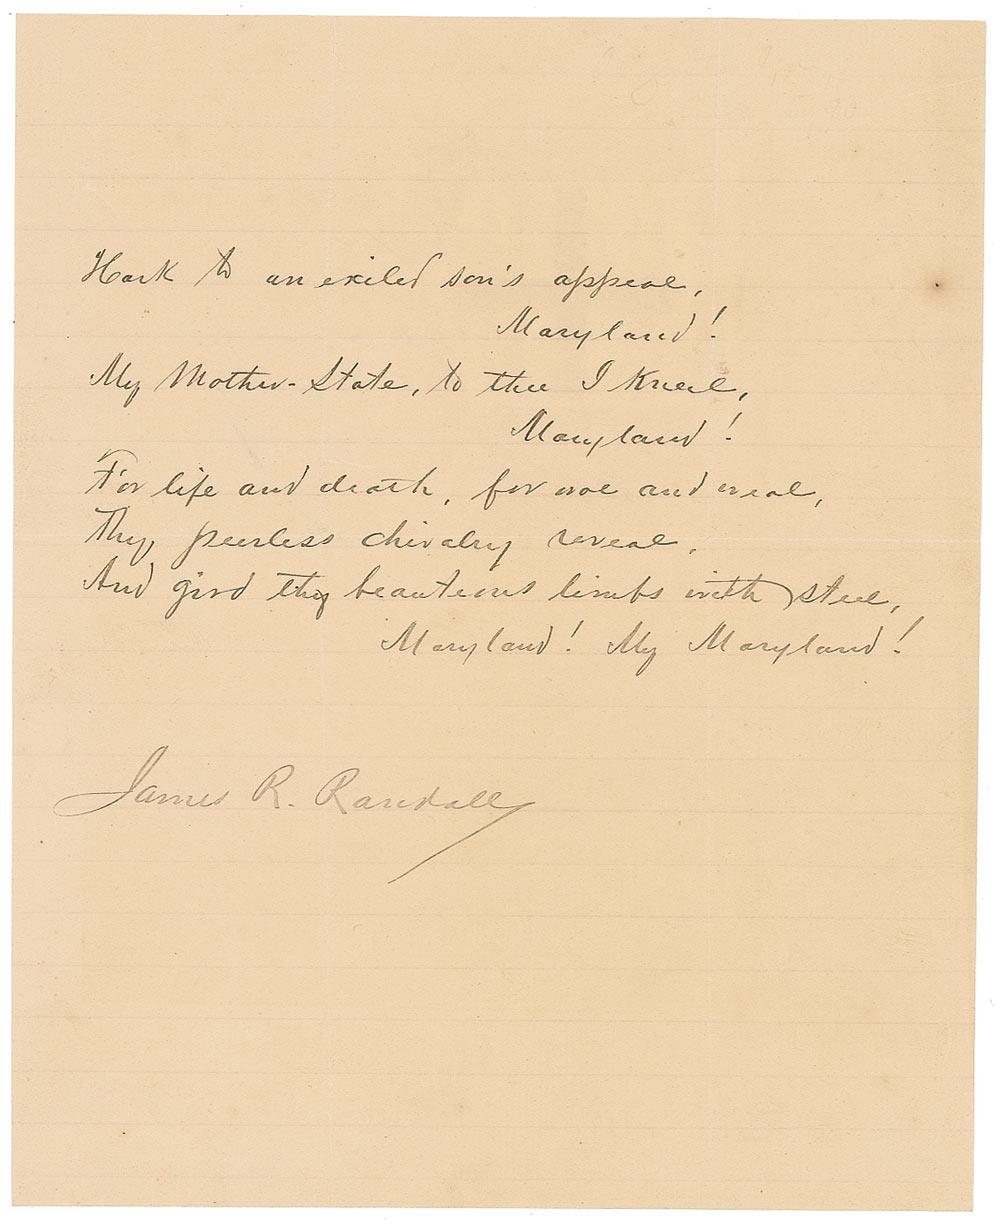 Hark to an exiled son's appeal,
Maryland!
My Mother-State, to thee I Kneel,
Maryland!
For life and death, for woe and weal,
Thy peerless chivalry reveal,
And gird thy beauteous limbs with steel,
Maryland! My Maryland!
James R. Randall